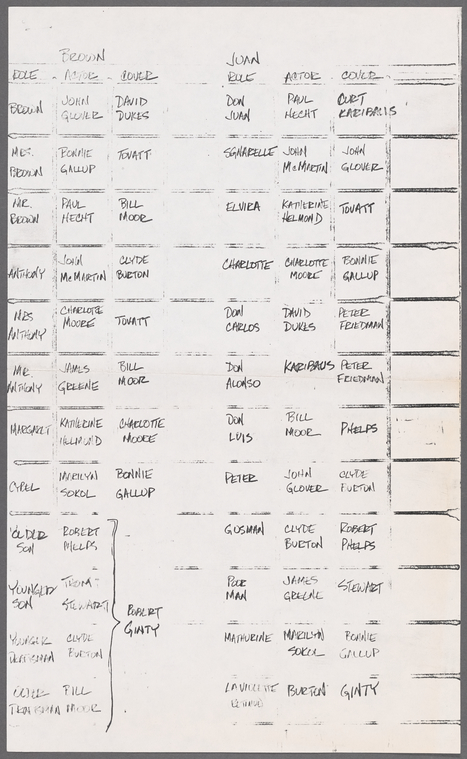 BROWN JUAN
ROLE ACTOR COVER ROLE ACTOR COVER
BROWN JOHN DAVID DON PAUL CURT
GLOVER DUKES JUAN HECHT KARIBALIS
MRS. BONNIE TOVATT SGNARELLE JOHN JOHN
BROWN GALLUP McMARTIN GLOVER
MR. PAUL BILL ELVIRA KATHERINE TOVATT
BROWN HECHT MOOR HELMOND
ANTHONY JOHN CLYDE CHARLOTTE CHARLOTTE BONNIE
McMARTIN BURTON MOORE GALLUP
MRS CHARLOTTE TOVATT DON DAVID PETER
ANTHONY MOORE CARLOS DUKES FRIEDMAN
MR. JAMES BILL DON KARIBALIS PETER
ANTHONY GREENE MOOR ALONSO FRIEDMAN
MARGARET KATHERINE CHARLOTTE DON BILL PHELPS
HELMOND MOORE LUIS MOOR
CYBEL MARILYN BONNIE PETER JOHN CLYDE
SOKOL GALLUP GLOVER BURTON
OLDER ROBERT GUSMAN CLYDE ROBERT
SON PHELPS BURTON PHELPS
YOUNGER THOM POOR JAMES STEWART
SON STEWART MAN GREENE
ROBERT
GINTY
YOUNGER CLYDE MATHURINE MARILYN BONNIE
DRAFTSMAN BURTON SOKOL GALLUP
OLDER BILL LAVIOLETTE BURTON GINTY
DRAFTSMAN MOOR